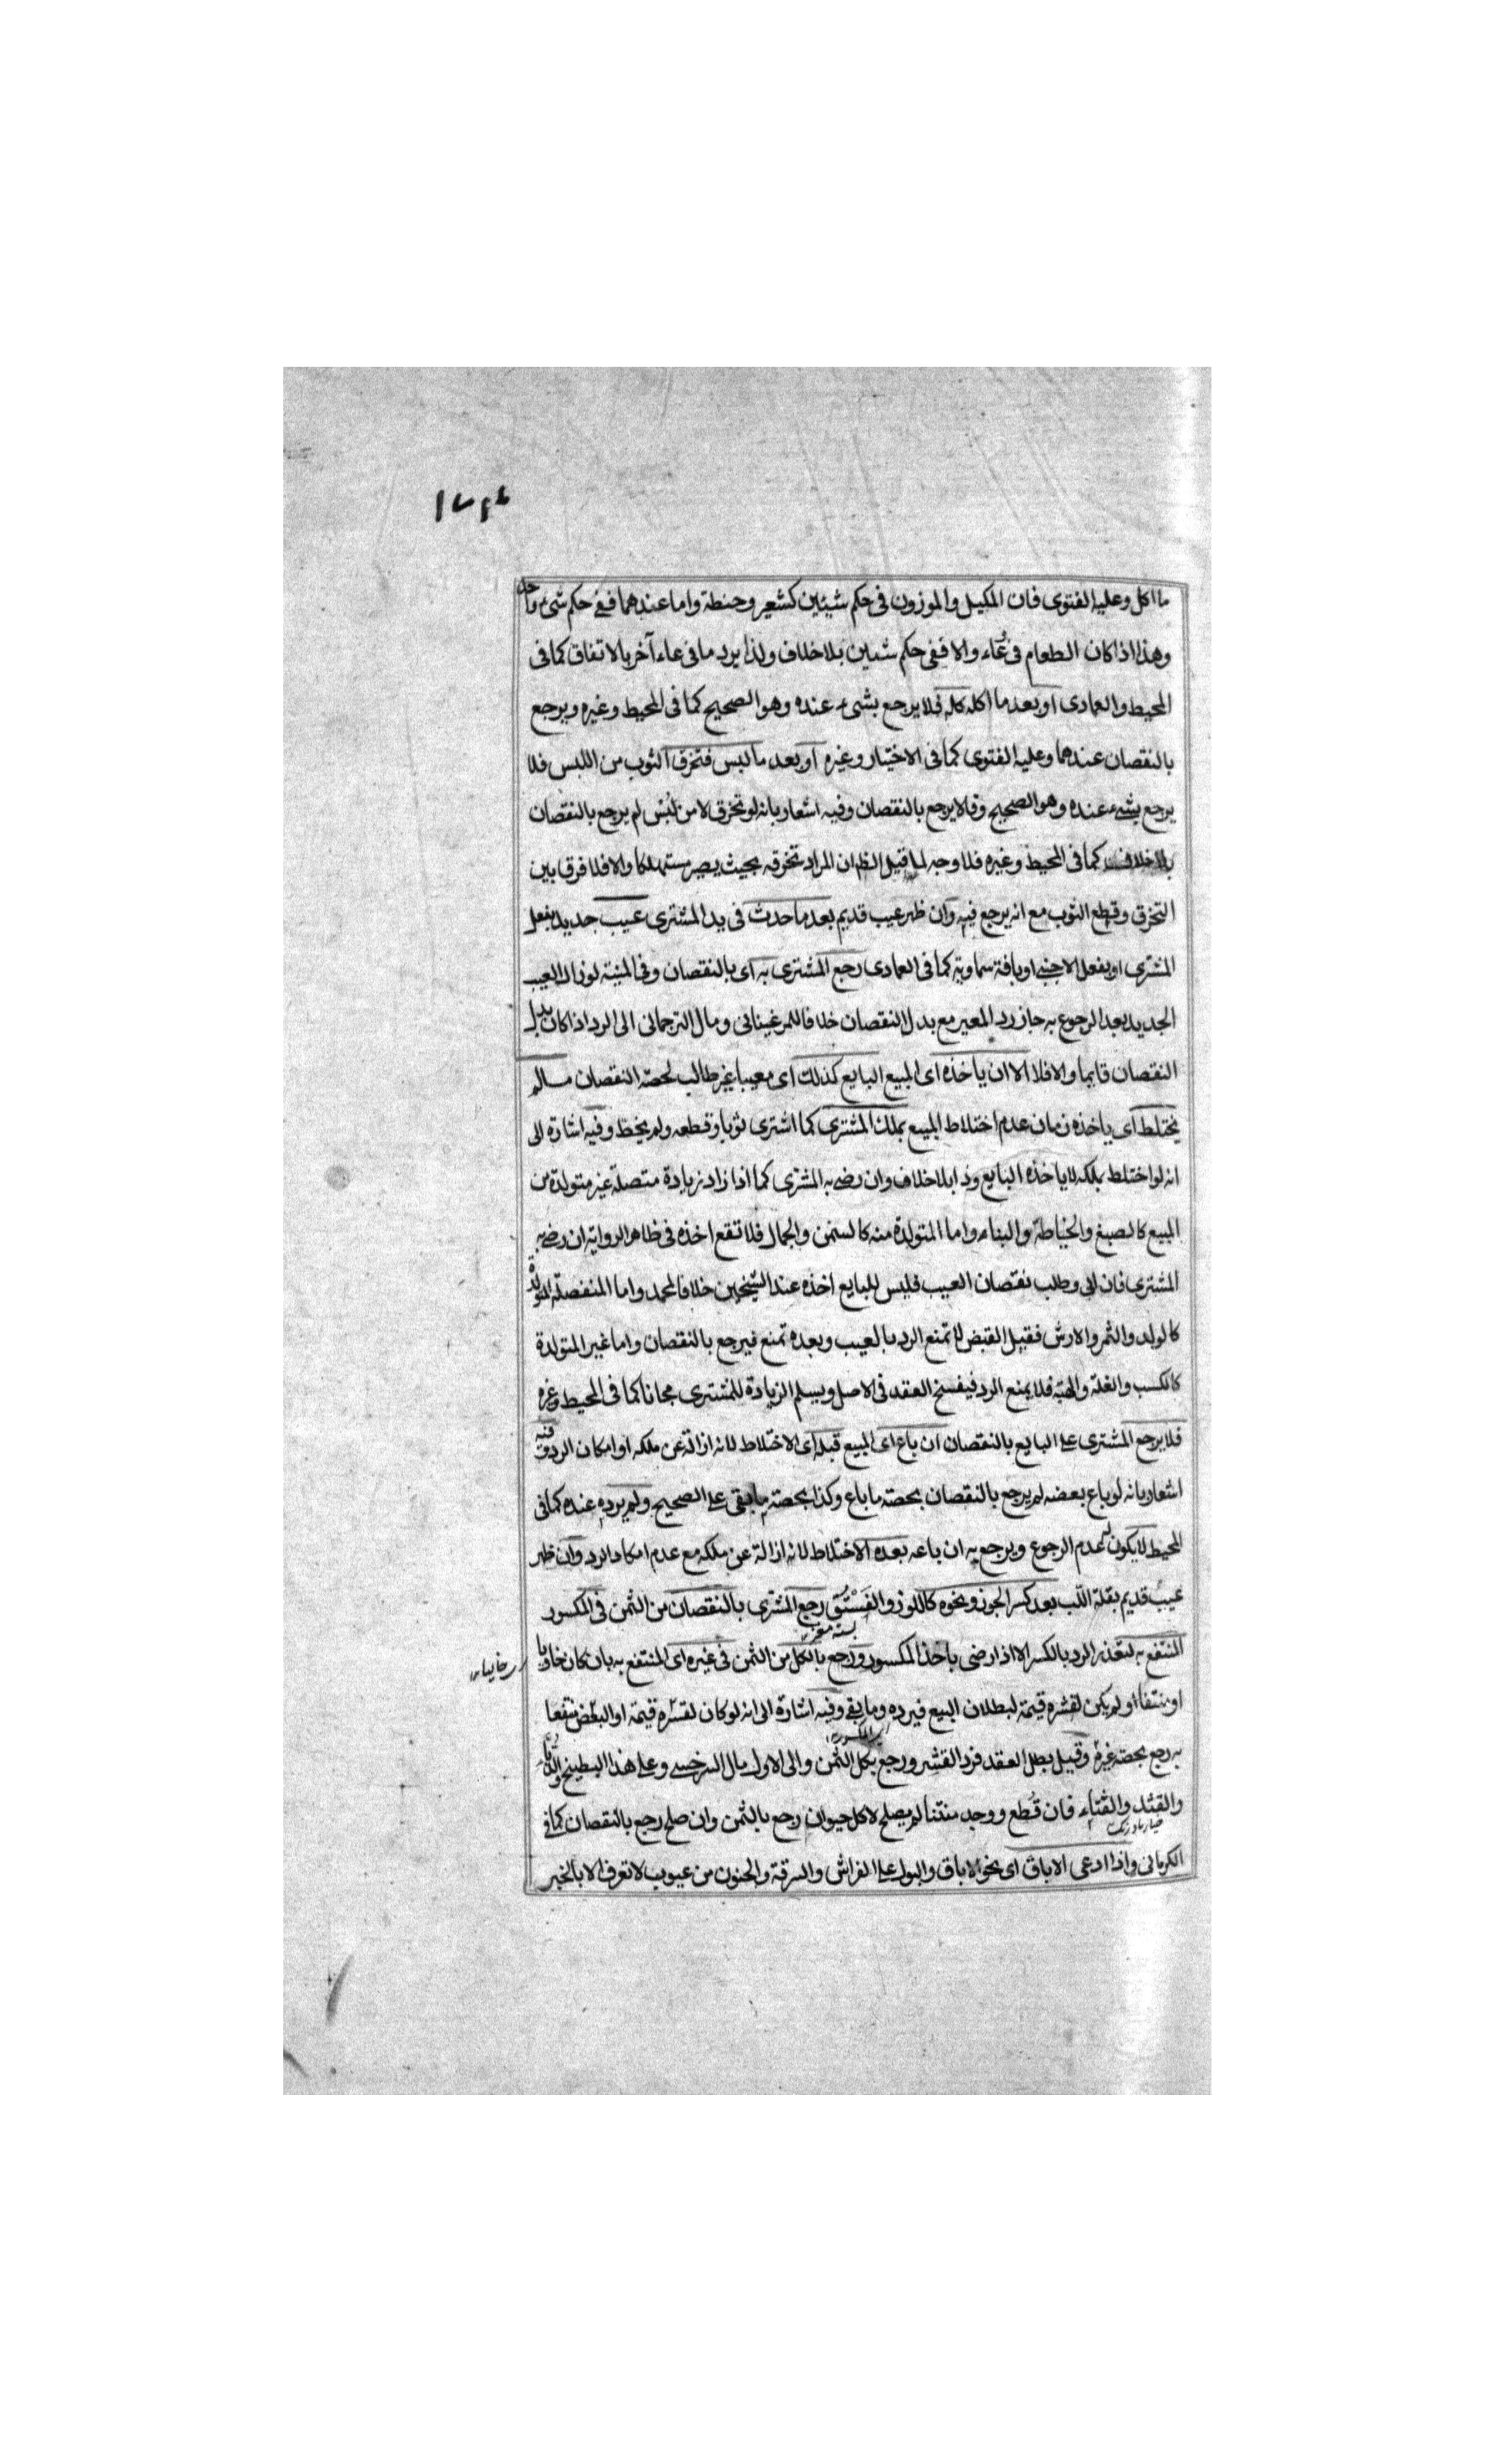 ما اكل وعليه الفتوى فان المكيل والموزون فى حكم شيئين كشعير وحنطة واما عندهما ففى حكم شىء واحد
وهذا اذا كان الطعام فى وعاء والا ففى حكم شيئين بلا خلاف ولذا يرد ما فى وعاء آخر بالاتفاق كما فى
المحيط والعمادى او بعد ما اكله كله فلا يرجع بشىء عنده وهو الصحيح كما فى المحيط وغيره ويرجع
بالنقصان عندهما وعليه الفتوى كما فى الاختيار وغيره او بعد ما لبس فتخرق الثوب من اللبس فلا
يرجع بشىء عنده وهو الصحيح وقالا يرجع بالنقصان وفيه اشعار بانه لو تخرق لا من لبس لم يرجع بالنقصان
بلا خلاف كما فى المحيط وغيره فلا وجه لما قيل الظ ان المراد تخرقه بحيث يصير مستهلكا والا فلا فرق بين
التخرق وقطع الثوب مع انه يرجع فيه وان ظهر عيب قديم بعد ما حدث فى يد المشترى عيب جديد بفعل
المشترى او بفعل الاجنبى او بافة سماوية كما فى العمادى رجع المشترى به اى بالنقصان وفى المنية لو زال العيب
الجديد بعد الرجوع به جاز رد المعيب مع بدل النقصان خلافا للمرغينانى ومال الترجمانى الى الرد اذا كان بدل
النقصان قايما والا فلا الا ان ياخذه اى المبيع البايع كذلك اى معيبا غير طالب لحصة النقصان ما لم
يختلط اى ياخذه زمان عدم اختلاط المبيع بملك المشترى كما اشترى ثوبا وقطعه ولم يخط وفيه اشارة الى
انه لو اختلط بملكه لا ياخذه البايع وذا بلا خلاف وان رضى به المشترى كما اذا زاد زيادة متصلة غير متولدة من
المبيع كالصبغ والخياطة والبناء واما المتولدة منه كالسمن والجمال فلا تمنع اخذه فى ظاهر الرواية ان رضى به
المشترى فان ابى وطلب نقصان العيب فليس للبايع اخذه عند الشيخين خلافا لمحمد واما المنفصلة المتولدة
كالولد والثمر والارش فقبل القبض لا تمنع الرد بالعيب وبعده تمنع فيرجع بالنقصان واما غير المتولدة
كالكسب والغلة والهبة فلا يمنع الرد فيفسخ العقد فى الاصل ويسلم الزيادة للمشترى مجانا كما فى المحيط وغيره
فلا يرجع المشترى على البايع بالنقصان ان باع اى المبيع قبله اى الاختلاط لانه ازالة عن ملكه او امكان الرد وفيه
اشعار بانه لو باع بعضه لم يرجع بالنقصان بحصة ما باع وكذا بحصة ما بقى على الصحيح ولم يرده عنده كما فى
المحيط لا يكون لعدم الرجوع ويرجع به ان باعه بعده الاختلاط لانه ازالة عن ملكه مع عدم امكان الرد وان ظهر
عيب قديم بقلة اللب بعد كسر الجوز ونحوه كاللوز والفستق رجع المشترى بالنقصان من الثمن فى المكسور
المنتفع به لتعذر الرد بالكسر الا اذا رضى باخذ المكسور ورجع بالكل من الثمن فى غيره اى المنتفع به بان كان خاويا
او منتفا او لم يكن لقشره قيمة لبطلان البيع فيرده وما بقى وفيه اشارة الى انه لو كان لقشره قيمة او البعض منتفعا
به رجع بحصة غيره وقيل بطل العقد فرد القشر ورجع بكل الثمن والى الاول مال السرخسى وعلى هذا البطيخ والدباء
والقثد والقثاء فان قطع ووجد منتنا لم يصلح لاكل حيوان رجع بالثمن وان صلح رجع بالنقصان كما فى
الكرمانى واذا ادعى الاباق اى نحو الاباق والبول على الفراش والسرقة والجنون من عيوب لا تعرف الا بالخبر